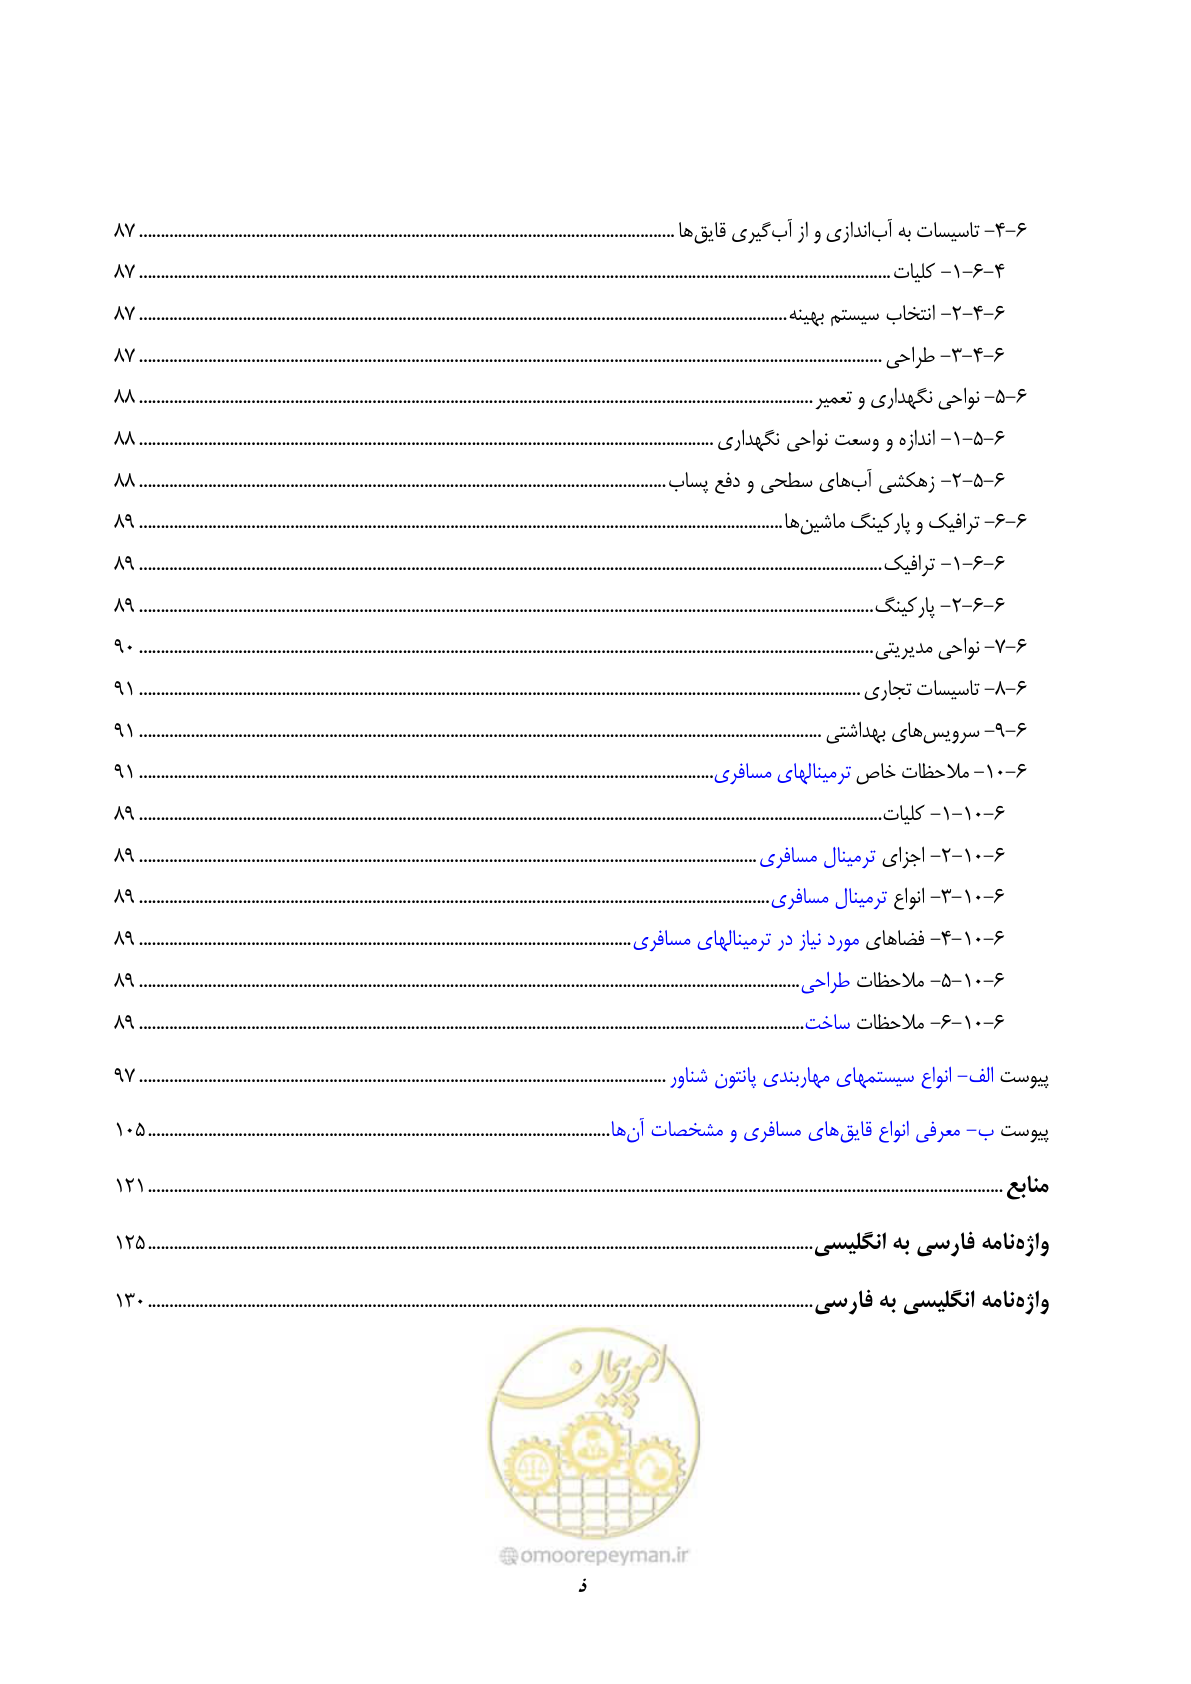 ۶-۴- تاسیسات به آب‌اندازی و از آب‌گیری قایق‌ها ........ ۸۷
۴-۶-۱- کلیات ........ ۸۷
۶-۴-۲- انتخاب سیستم بهینه ........ ۸۷
۶-۴-۳- طراحی ........ ۸۷
۶-۵- نواحی نگهداری و تعمیر ........ ۸۸
۶-۵-۱- اندازه و وسعت نواحی نگهداری ........ ۸۸
۶-۵-۲- زهکشی آب‌های سطحی و دفع پساب ........ ۸۸
۶-۶- ترافیک و پارکینگ ماشین‌ها ........ ۸۹
۶-۶-۱- ترافیک ........ ۸۹
۶-۶-۲- پارکینگ ........ ۸۹
۶-۷- نواحی مدیریتی ........ ۹۰
۶-۸- تاسیسات تجاری ........ ۹۱
۶-۹- سرویس‌های بهداشتی ........ ۹۱
۶-۱۰- ملاحظات خاص ترمینالهای مسافری ........ ۹۱
۶-۱۰-۱- کلیات ........ ۸۹
۶-۱۰-۲- اجزای ترمینال مسافری ........ ۸۹
۶-۱۰-۳- انواع ترمینال مسافری ........ ۸۹
۶-۱۰-۴- فضاهای مورد نیاز در ترمینالهای مسافری ........ ۸۹
۶-۱۰-۵- ملاحظات طراحی ........ ۸۹
۶-۱۰-۶- ملاحظات ساخت ........ ۸۹
پیوست الف- انواع سیستمهای مهاربندی پانتون شناور ........ ۹۷
پیوست ب- معرفی انواع قایق‌های مسافری و مشخصات آن‌ها ........ ۱۰۵
منابع ........ ۱۲۱
واژه‌نامه فارسی به انگلیسی ........ ۱۲۵
واژه‌نامه انگلیسی به فارسی ........ ۱۳۰
امور پیمان
omoorepeyman.ir
ذ